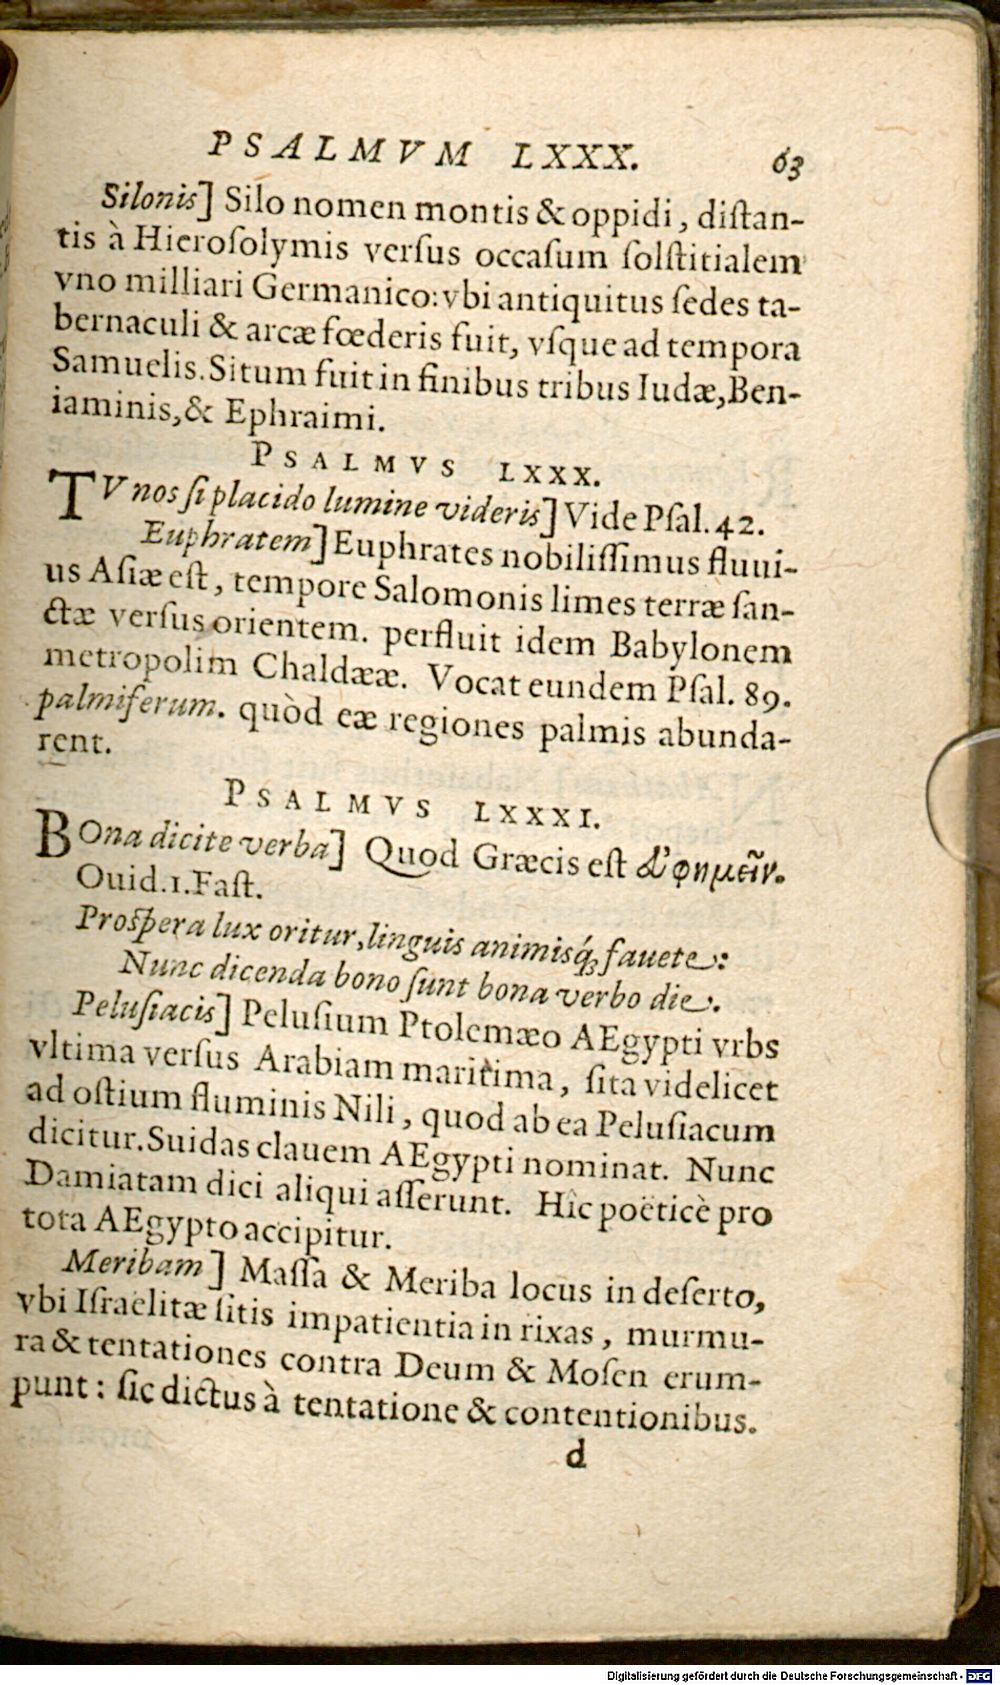 PSALMVM LXXX. 63
Silonis] Silo nomen montis & oppidi, diſtan-
tis à Hieroſolymis verſus occaſum ſolſtitialem
vno milliari Germanico: vbi antiquitus ſedes ta-
bernaculi & arcæ fœderis fuit, vſque ad tempora
Samuelis. Situm fuit in finibus tribus Iudæ, Ben-
iaminis, & Ephraimi.
PSALMVS LXXX.
TV nos ſi placido lumine videris] Vide Pſal. 42.
Euphratem] Euphrates nobiliſſimus fluui-
us Aſiæ eſt, tempore Salomonis limes terræ ſan-
ctæ verſus orientem. perfluit idem Babylonem
metropolim Chaldææ. Vocat eundem Pſal. 89.
palmiferum. quòd eæ regiones palmis abunda-
rent.
PSALMVS LXXXI.
BOna dicite verba] Quod Græcis eſt εὐφημεῖν.
Ouid. 1. Faſt.
Proſpera lux oritur, linguis animisq́ꝫ fauete:
Nunc dicenda bono ſunt bona verbo die.
Peluſiacis] Peluſium Ptolemæo AEgypti vrbs
vltima verſus Arabiam maritima, ſita videlicet
ad oſtium fluminis Nili, quod ab ea Peluſiacum
dicitur. Suidas clauem AEgypti nominat. Nunc
Damiatam dici aliqui aſſerunt. Hic poëticè pro
tota AEgypto accipitur.
Meribam] Maſſa & Meriba locus in deſerto,
vbi Iſraëlitæ ſitis impatientia in rixas, murmu-
ra & tentationes contra Deum & Moſen erum-
punt: ſic dictus à tentatione & contentionibus.
d
Digitalisierung gefördert durch die Deutsche Forschungsgemeinschaft - DFG